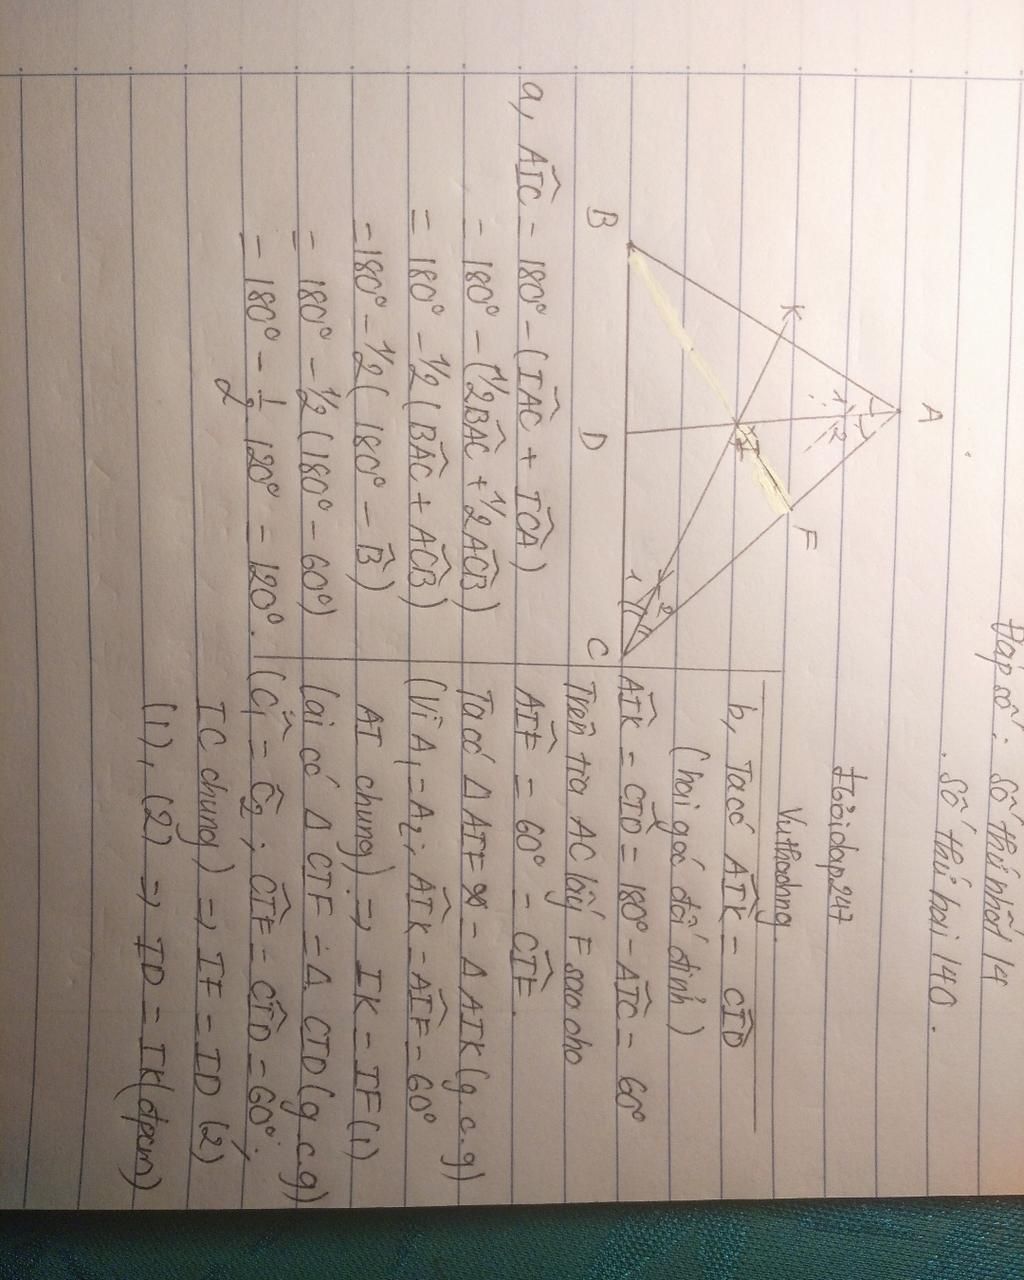 Đáp số: số thứ nhất 14
. số thứ hai 140.
Hỏidap247
Vuthaohng.
A
1 2
K
F
I
B
D
C
1 2
a, AIC = 180° - (IAC + ICA)
= 180° - (1/2BAC + 1/2ACB)
= 180° - 1/2(BAC + ACB)
= 180° - 1/2(180° - B)
= 180° - 1/2(180° - 60°)
= 180° - 1/2 120° = 120°.
b, Ta có AIK = CID
(hai góc đối đỉnh)
AIK = CID = 180° - AIC = 60°
Trên tia AC lấy F sao cho
AIF = 60° = CIF.
Ta có Δ AIF = Δ AIK (g.c.g)
(Vì A1 = A2; AIK = AIF = 60°
AI chung) => IK = IF (1)
Lại có Δ CIF = Δ CID (g.c.g)
(C1 = C2; CIF = CID = 60°;
IC chung) => IF = ID (2)
(1), (2) => ID = IK (đpcm)